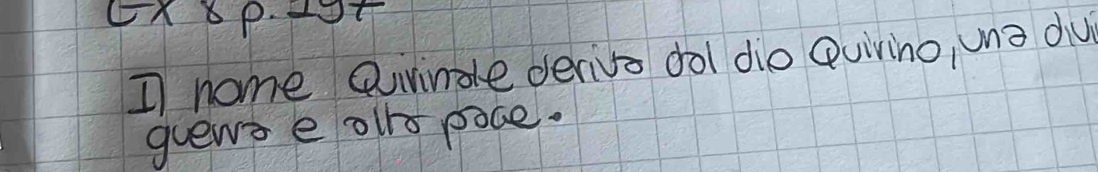 Ex 8 p. 297
Il nome Quirinale deriva dal dio Quirino, una divi
guerra e alla pace.